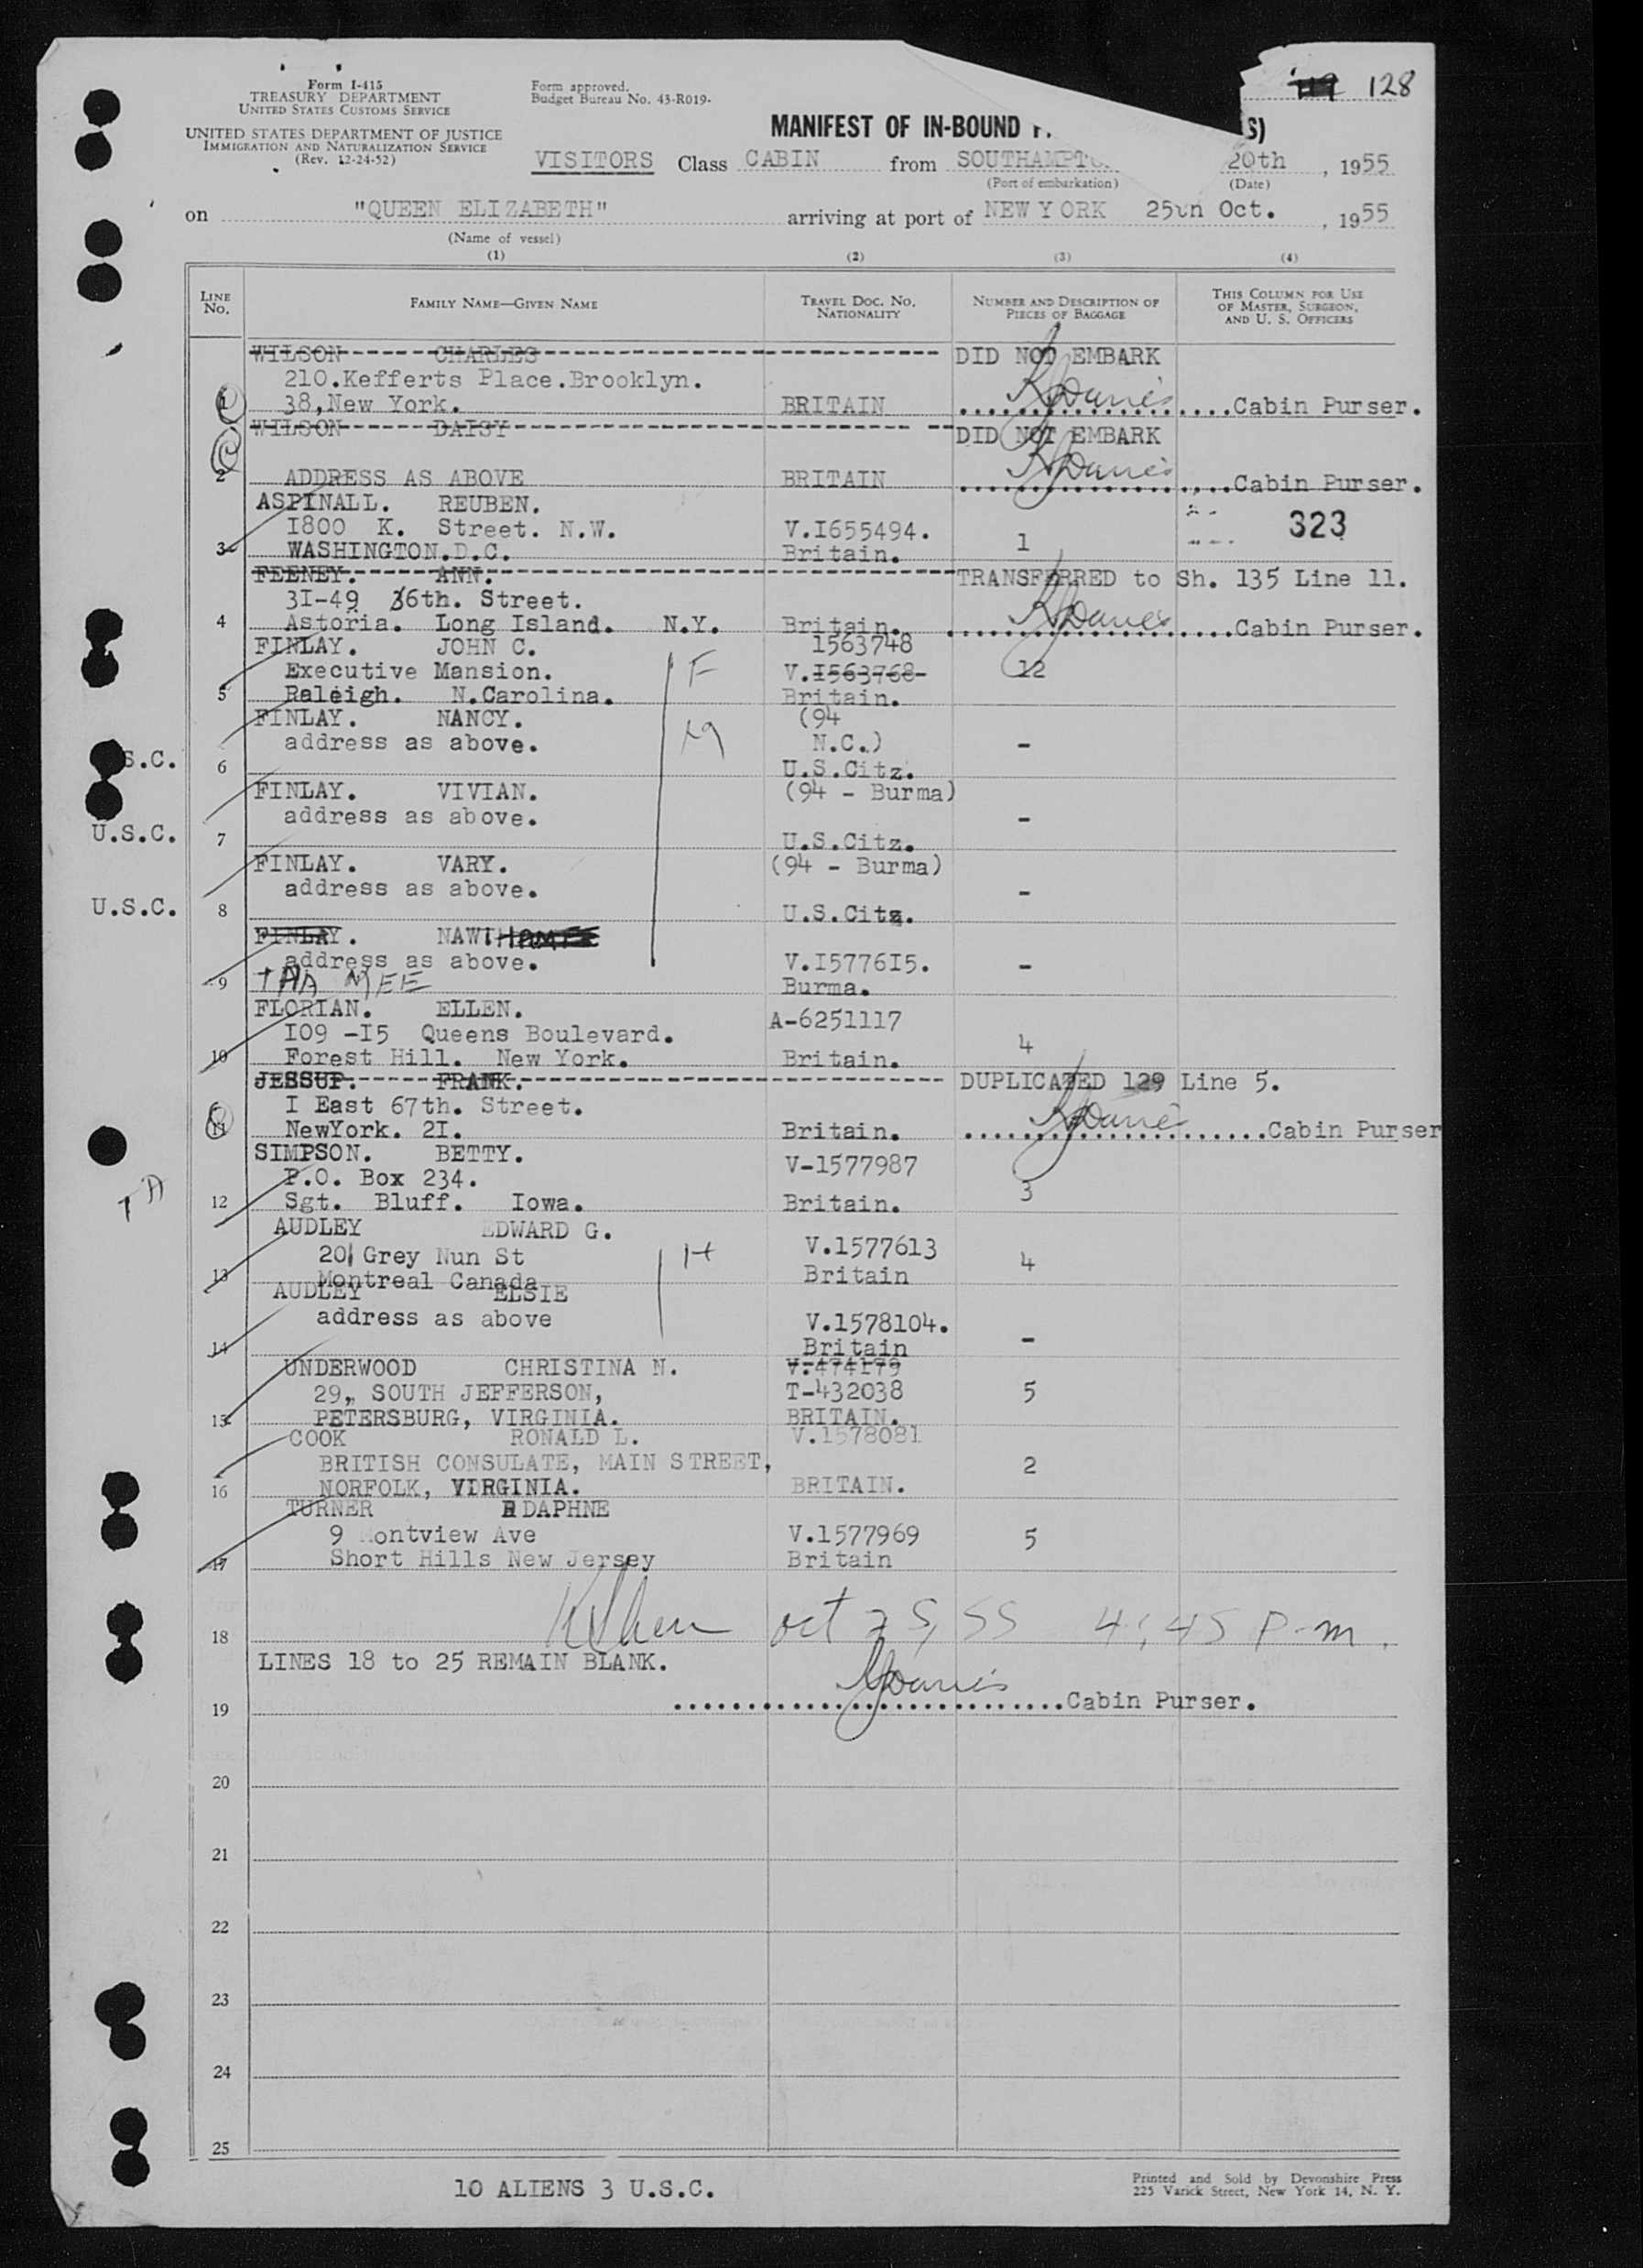 119 128
Form I-415
TREASURY DEPARTMENT
UNITED STATES CUSTOMS SERVICE
UNITED STATES DEPARTMENT OF JUSTICE
IMMIGRATION AND NATURALIZATION SERVICE
(Rev. 12-24-52)
Form approved.
Budget Bureau No. 43-R019-
MANIFEST OF IN-BOUND S)
VISITORS Class CABIN from SOUTHAMPTO 20th , 1955
(Port of embarkation) (Date)
on "QUEEN ELIZABETH" arriving at port of NEW YORK 25th Oct. , 1955
(Name of vessel)
(1) (2) (3) (4)
LINE No. FAMILY NAME—GIVEN NAME TRAVEL DOC. NO. NATIONALITY NUMBER AND DESCRIPTION OF PIECES OF BAGGAGE THIS COLUMN FOR USE OF MASTER, SURGEON, AND U. S. OFFICERS
WILSON CHARLES DID NOT EMBARK
210.Kefferts Place.Brooklyn.
1 38,New York. BRITAIN KJDavies Cabin Purser.
WILSON DAISY DID NOT EMBARK
2 ADDRESS AS ABOVE BRITAIN KJDavies Cabin Purser.
ASPINALL. REUBEN.
1800 K. Street. N.W. V.I655494. 323
3 WASHINGTON.D.C. Britain. 1
FEENEY. ANN. TRANSFERRED to Sh. 135 Line 11.
3I-49 36th. Street.
4 Astoria. Long Island. N.Y. Britain. KJDavies Cabin Purser.
FINLAY. JOHN C. 1563748
Executive Mansion. F V.I563768- 12
5 Raleigh. N.Carolina. Britain.
FINLAY. NANCY. (94
address as above. N.C.) -
S.C. 6 U.S.Citz.
FINLAY. VIVIAN. (94 - Burma)
address as above. -
U.S.C. 7 U.S.Citz.
FINLAY. VARY. (94 - Burma)
address as above. -
U.S.C. 8 U.S.Citz.
FINLAY. NAWTHAMEE
address as above. V.I5776I5. -
9 THA MEE Burma.
FLORIAN. ELLEN. A-6251117
I09 -I5 Queens Boulevard. 4
10 Forest Hill. New York. Britain.
JESSUP. FRANK. DUPLICATED 129 Line 5.
I East 67th. Street.
11 NewYork. 2I. Britain. KJDavies Cabin Purser
SIMPSON. BETTY. V-1577987
P.O. Box 234. 3
12 Sgt. Bluff. Iowa. Britain.
AUDLEY EDWARD G. V.1577613
201 Grey Nun St H 4
13 Montreal Canada Britain
AUDLEY ELSIE
address as above V.1578104. -
14 Britain
UNDERWOOD CHRISTINA N. V.474179
29, SOUTH JEFFERSON, T-432038 5
15 PETERSBURG, VIRGINIA. BRITAIN.
COOK RONALD L. V.1578081
BRITISH CONSULATE, MAIN STREET, 2
16 NORFOLK, VIRGINIA. BRITAIN.
TURNER DAPHNE
9 ontview Ave V.1577969 5
17 Short Hills New Jersey Britain
18 oct 25, 55 4:45 P.m.
LINES 18 to 25 REMAIN BLANK.
19 KJDavies Cabin Purser.
20
21
22
23
24
25
10 ALIENS 3 U.S.C.
Printed and Sold by Devonshire Press
225 Varick Street, New York 14, N. Y.